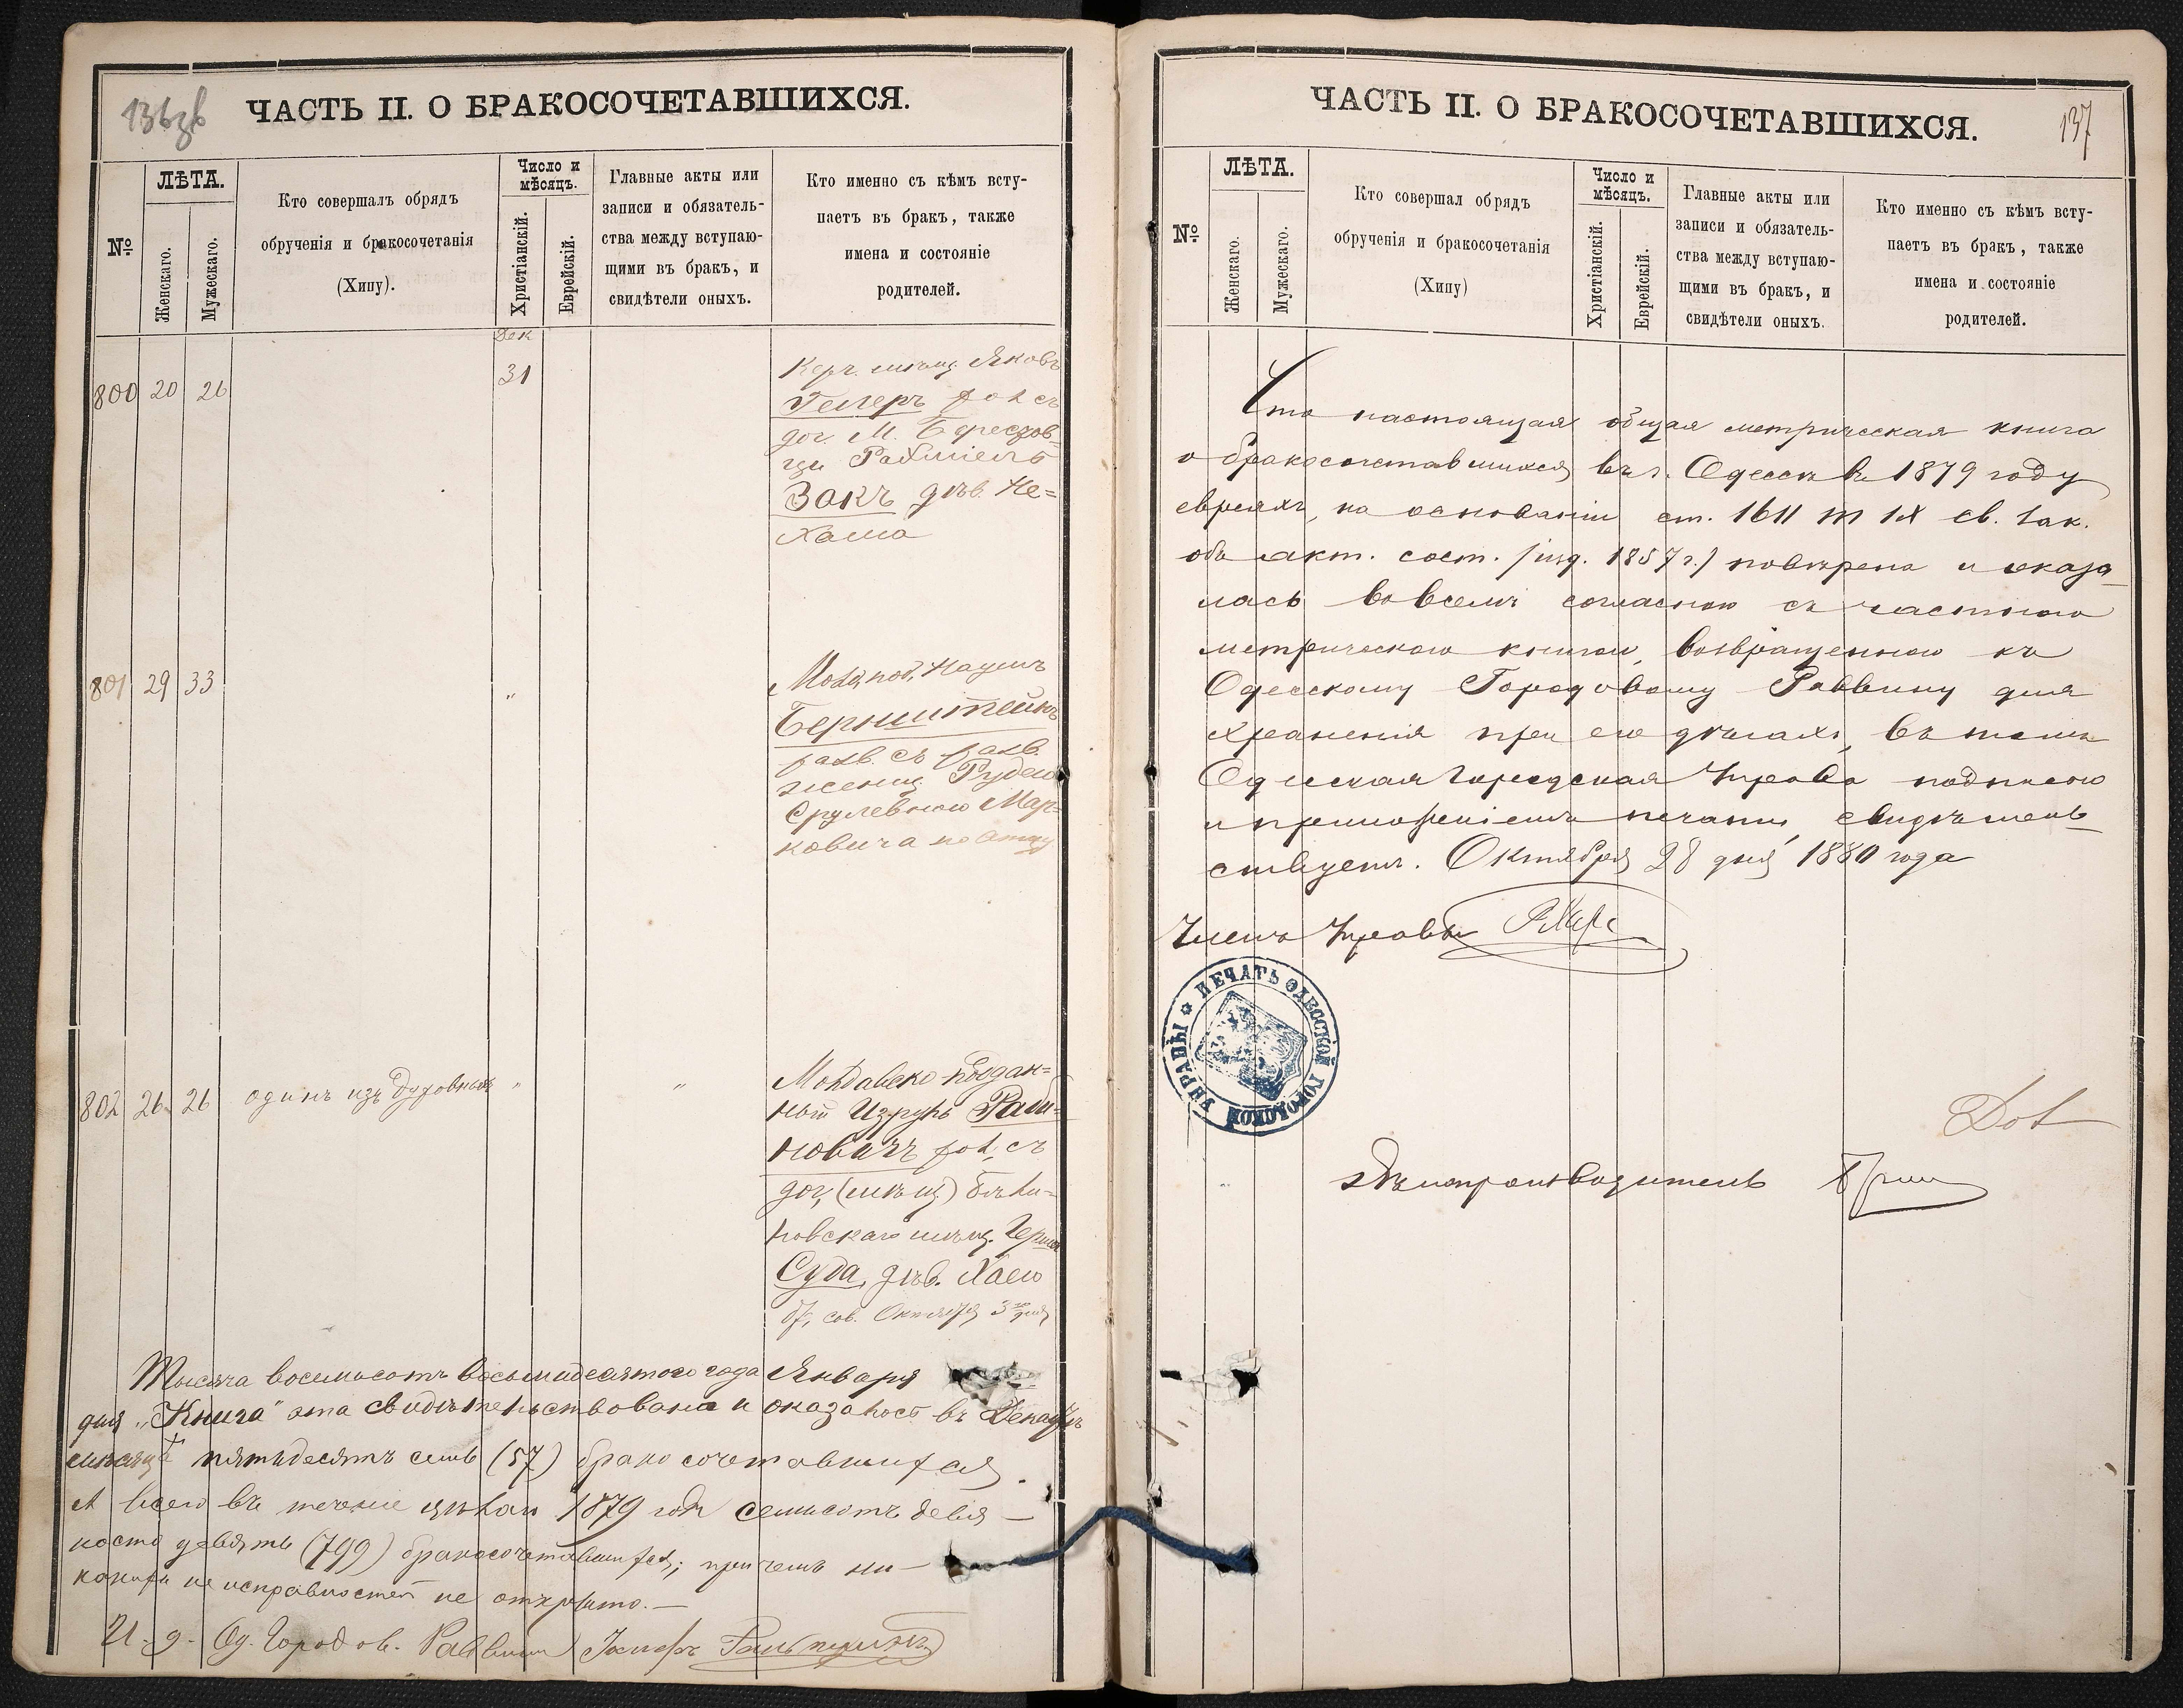 136зв
ЧАСТЬ II. О БРАКОСОЧЕТАВШИХСЯ.
№
ЛѢТА.
Женскаго.
Мужескаго.
Кто совершалъ обрядъ
обрученія и бракосочетанія
(Хипу).
Число и
мѣсяцъ.
Христіанскій.
Еврейскій.
Главные акты или
записи и обязатель-
ства между вступаю-
щими въ бракъ, и
свидѣтели оныхъ.
Кто именно съ кѣмъ всту-
паетъ въ бракъ, также
имена и состояніе
родителей.
Дек
800 20 26
31
Керч. мѣщ. Яковъ
Гелеръ хол съ
доч. М. Березов-
ци Рахміель
Закъ дѣв. Не=
хама
801 29 33
"
Молд. под. Наумъ
Бернштейнъ
разв. съ разв.
женщ. Рудею
Срулевною Мар=
ковича по отцу
802 26 26
одинъ изъ духовныхъ
"
"
Молдавско-поддан=
ный Изруль Раби=
новичъ хол. съ
доч. (мѣщ) Бѣли=
новскаго мѣщ. Герша
Суда, дѣв. Хаею
бр. сов. Октября 3го дня
Тысяча восемьсотъ восьмидесятаго года Января
дня "Книга" эта свидѣтельствована и оказалось въ Декабрѣ
мѣсяцѣ пятьдесятъ семь (57) бракосочетавшихся.
А всего въ теченіе цѣлаго 1879 года семьсотъ девя-
носто девять (799) бракосочетавшихся; причемъ ни-
какихъ неисправностей не открыто.—
И. д. Од. Городов. Раввинъ
137
ЧАСТЬ II. О БРАКОСОЧЕТАВШИХСЯ.
№
ЛѢТА.
Женскаго.
Мужескаго.
Кто совершал обрядъ
обрученія и бракосочетанія
(Хипу)
Число и
мѣсяцъ.
Христіанскій.
Еврейскій.
Главные акты или
записи и обязатель-
ства между вступаю-
щими въ бракъ, и
свидѣтели оныхъ.
Кто именно съ кѣмъ всту-
паетъ въ бракъ, также
имена и состояніе
родителей.
Что настоящая общая метрическая книга
о бракосочетавшихся въ г. Одессѣ въ 1879 году
евреяхъ, на основаніи ст. 1611 т IX св. Зак.
объ акт. сост. /изд. 1857 г./ повѣрена и оказа-
лась во всемъ согласною съ частною
метрическою книгою, возвращенною къ
Одесскому Городовому Раввину для
храненія при его дѣлахъ, въ томъ
Одесская Городская Управа подписью
и приложеніемъ печати, свидѣтель-
ствуетъ. Октября 28 дня 1880 года
Членъ Управы
ПЕЧАТЬ ОДЕССКОЙ ГОРОДСКОЙ УПРАВЫ
Дѣлопроизводитель